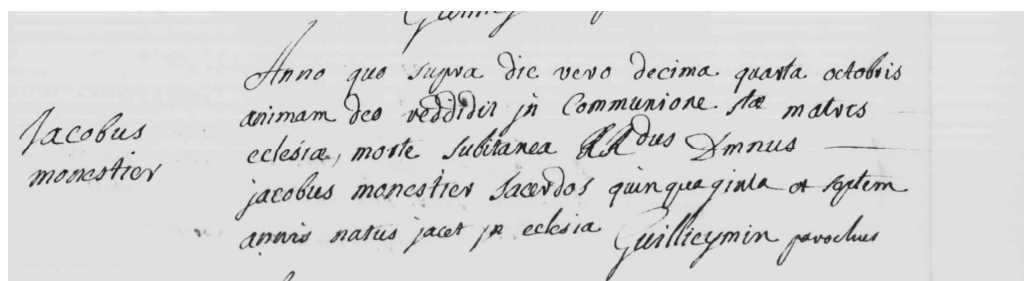 Jacobus
monestier
Anno quo supra die vero decima quarta octobris
animam deo reddidit jn Communione stæ matris
eclesiæ, morte subitanea RRdus Dmnus
jacobus monestier sacerdos quinquaginta et septem
annis natus jacet jn eclesia Guillieymin parochus